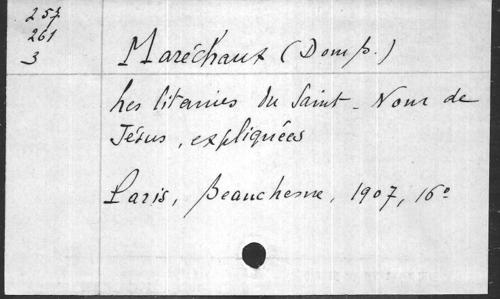 257
261
3
Maréchaux (Dom B.)
Les litanies du Saint-Nom de
Jésus, expliquées
Paris, Beauchesne, 1907, 16°